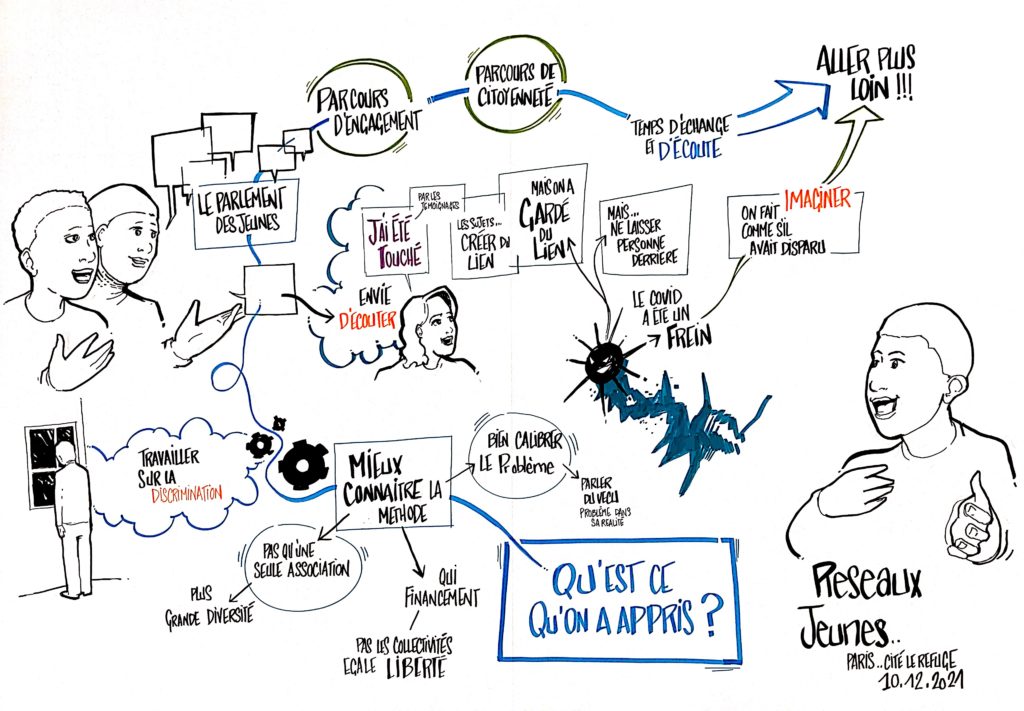 PARCOURS
D'ENGAGEMENT
PARCOURS DE
CITOYENNETÉ
TEMPS D'ÉCHANGE
ET D'ÉCOUTE
ALLER PLUS
LOIN !!!
LE PARLEMENT
DES JEUNES
PAR LES
TEMOIGNAGES
J'AI ÉTÉ
TOUCHÉ
LES SUJETS...
CRÉER DU
LIEN
MAIS ON A
GARDÉ
DU
LIEN
MAIS...
NE LAISSER
PERSONNE
DERRIERE
IMAGINER
ON FAIT
COMME S'IL
AVAIT DISPARU
ENVIE
D'ÉCOUTER
LE COVID
A ÉTÉ UN
FREIN
TRAVAILLER
SUR LA
DISCRIMINATION
MIEUX
CONNAITRE LA
METHODE
BIEN CALIBRER
LE PROBLÈME
PARLER
DU VECU
PROBLÈME DANS
SA REALITÉ
PAS QU'UNE
SEULE ASSOCIATION
PLUS
GRANDE DIVERSITÉ
QUI
FINANCEMENT
PAS LES COLLECTIVITÉS
EGALE LIBERTÉ
QU'EST CE
QU'ON A APPRIS ?
RESEAUX
JEUNES..
PARIS.. CITÉ LE REFUGE
10.12.2021